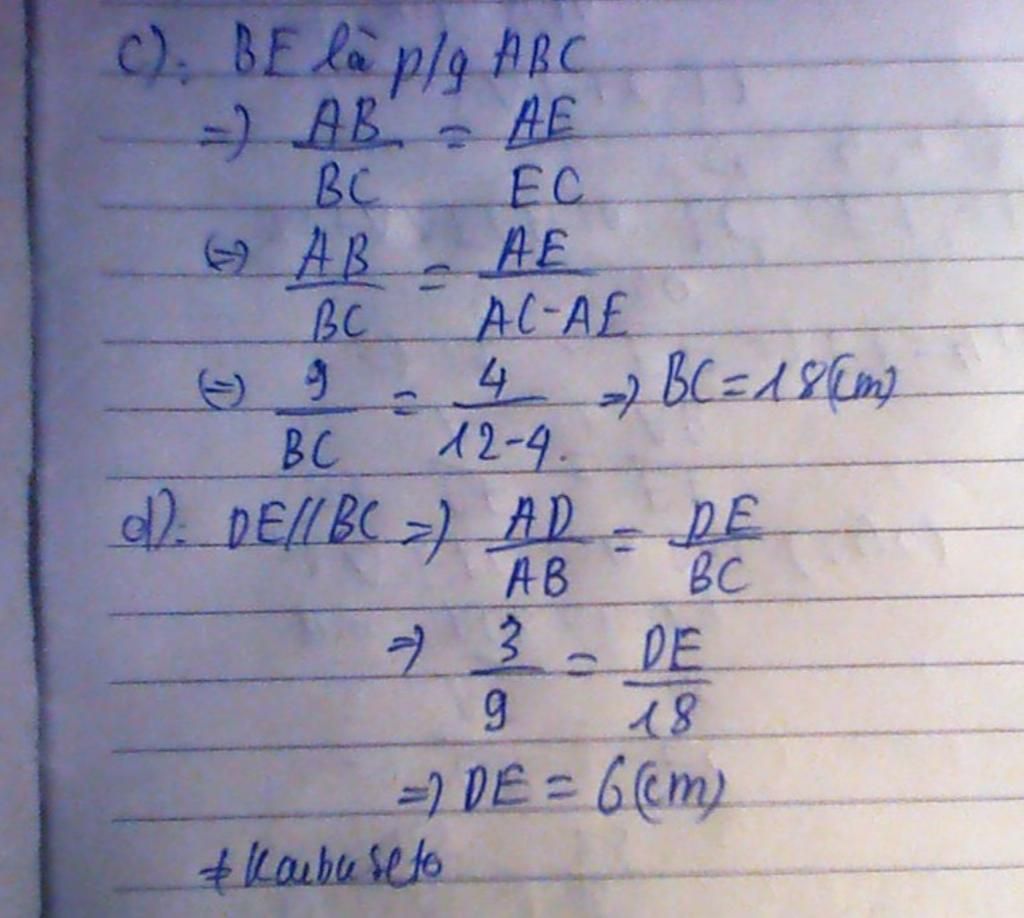 c): BE là p/g ABC
=> AB/BC = AE/EC
<=> AB/BC = AE/AC-AE
<=> 9/BC = 4/12-4. => BC = 18(cm)
d): DE//BC => AD/AB = DE/BC
=> 3/9 = DE/18
=> DE = 6(cm)